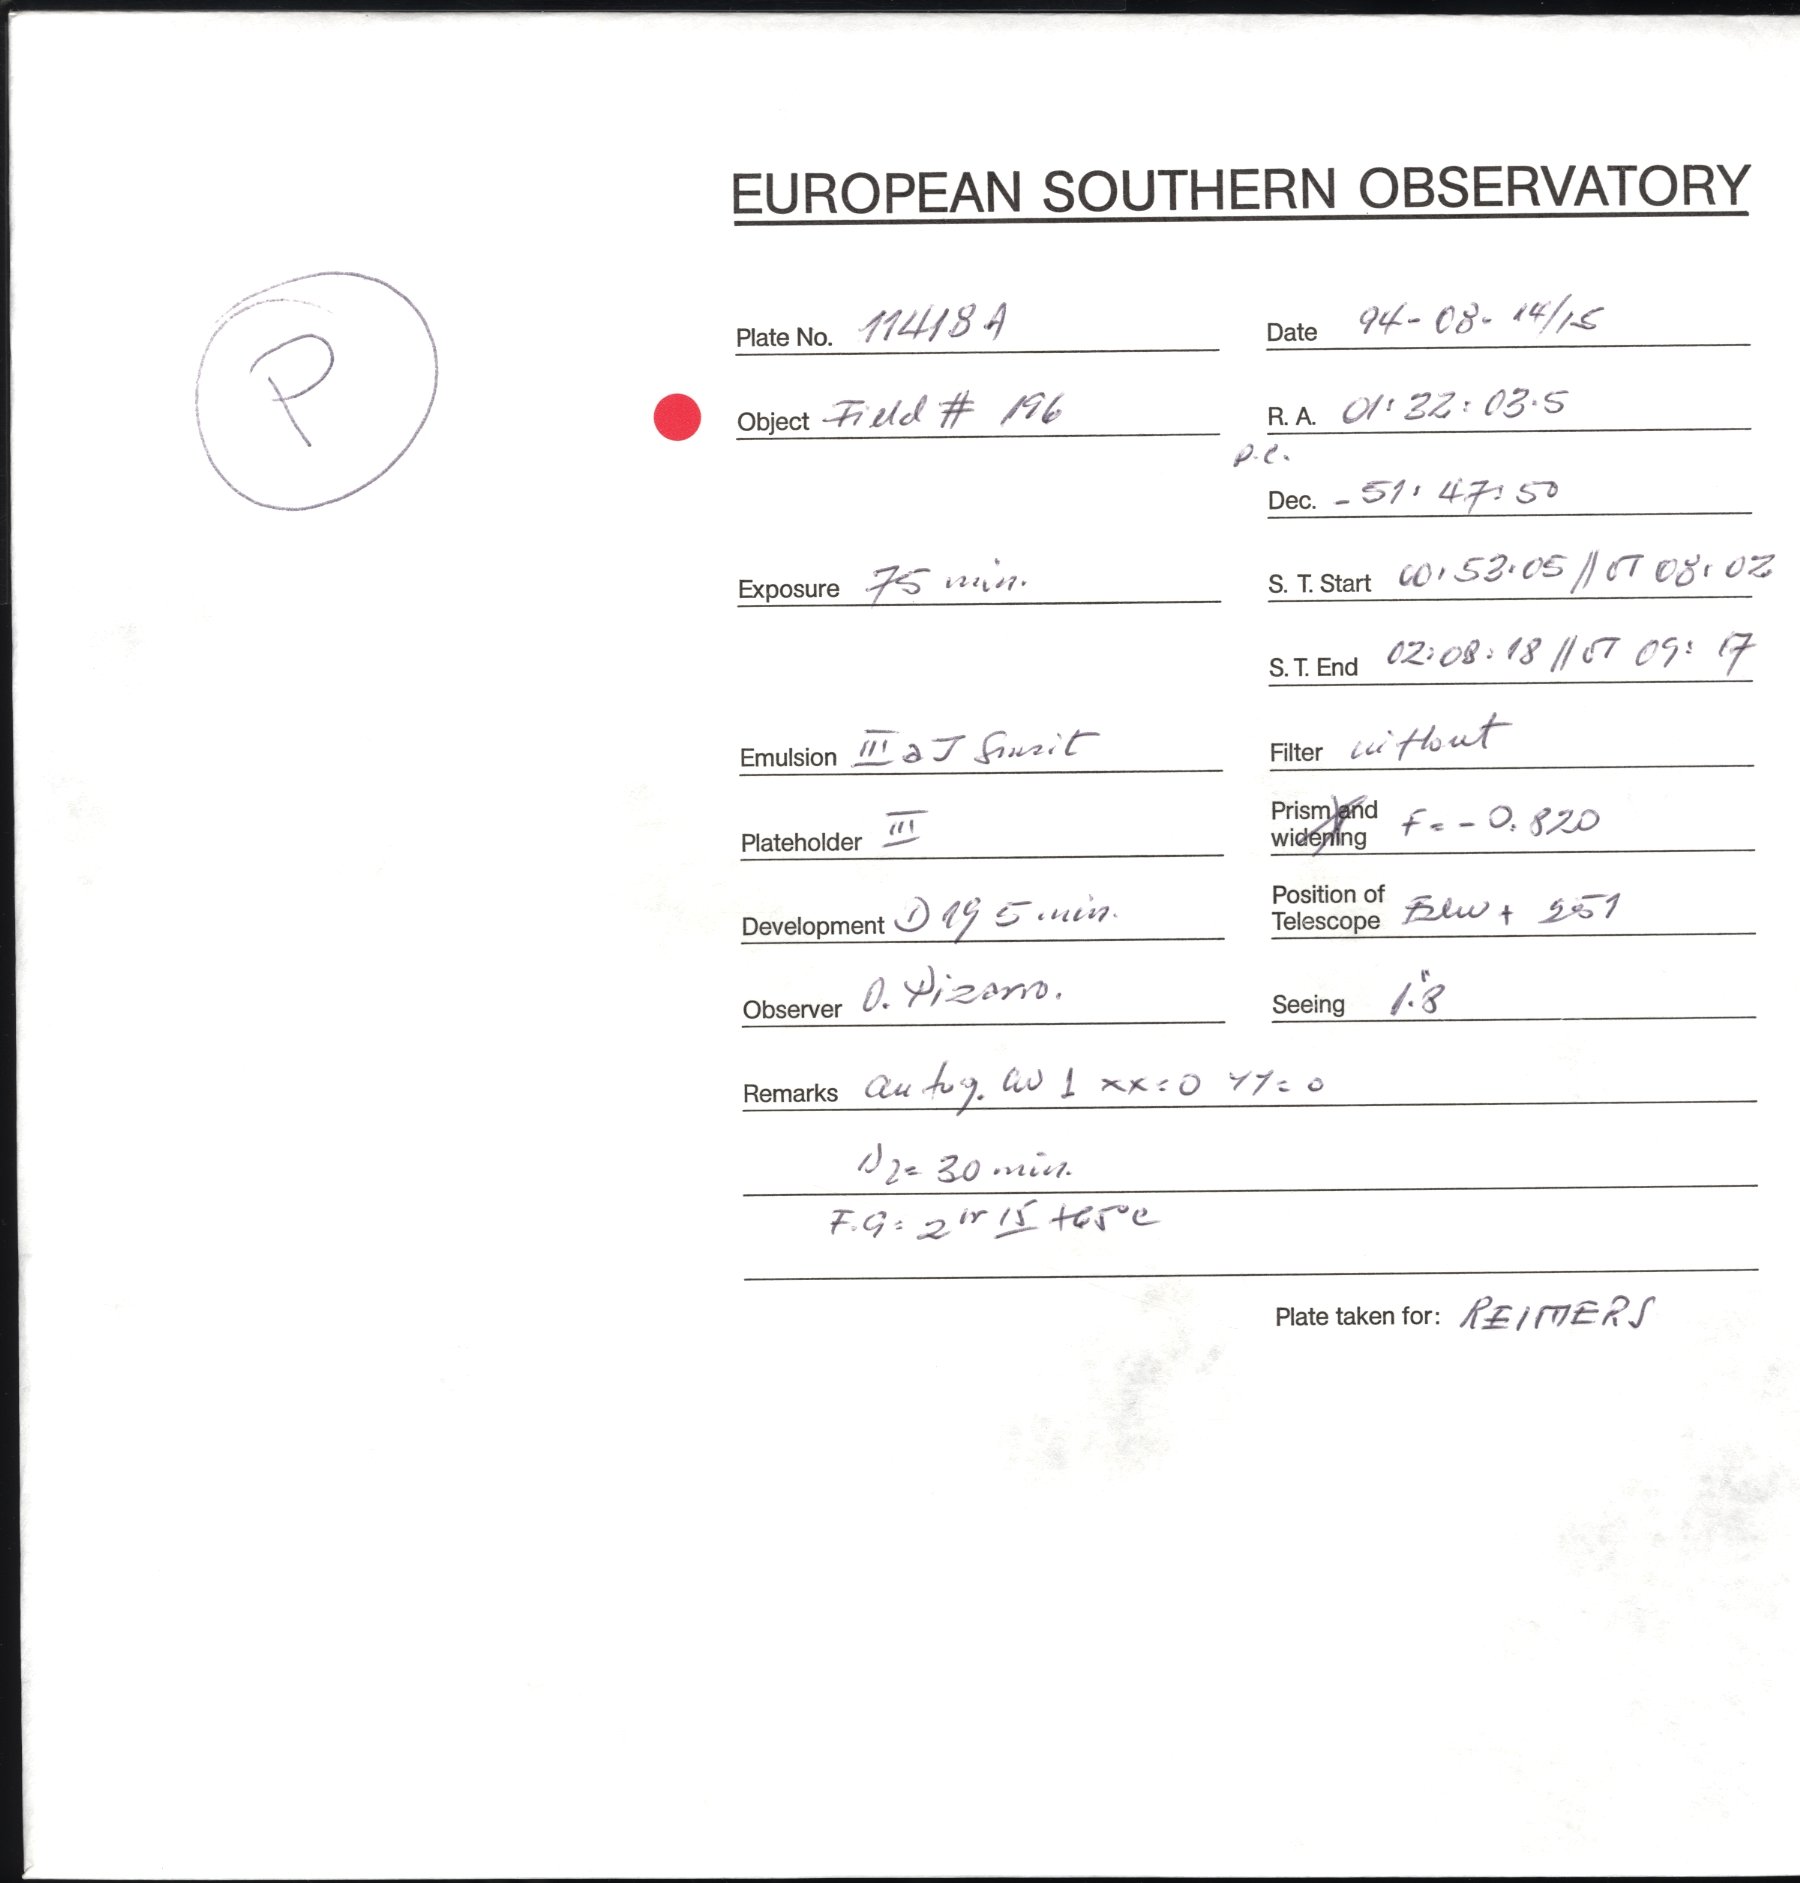 EUROPEAN SOUTHERN OBSERVATORY
P
Plate No. 11418A Date 94-08-14/15
Object Field # 196 R. A. 01:32:03.5
p.c.
Dec. -51:47:50
Exposure 75 min. S. T. Start 00:53:05 // UT 08:02
S. T. End 02:08:18 // UT 09:17
Emulsion III a J Filter without
Plateholder III Prism and widening F = -0.820
Development D19 5 min. Position of Telescope + 251
Observer O. Pizarro. Seeing 1".8
Remarks autog. W 1 xx=0 YY=0
N2= 30 min.
F.G = 2 hr 15 +65°C
Plate taken for: REIMERS